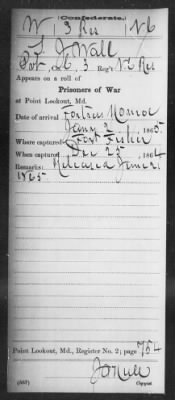 (Confederate.)
W 3 Res N C
S J Wall
Pvt, Co. G, 3 Reg't N C Res
Appears on a roll of
Prisoners of War
at Point Lookout, Md.
Date of arrival Fortress Monroe
Jany 2, 1865
Where captured Fort Fisher
When captured Dec 25, 1864
Remarks: Released June 21
1865
Point Lookout, Md., Register No. 2; page 754
(557) Copyist